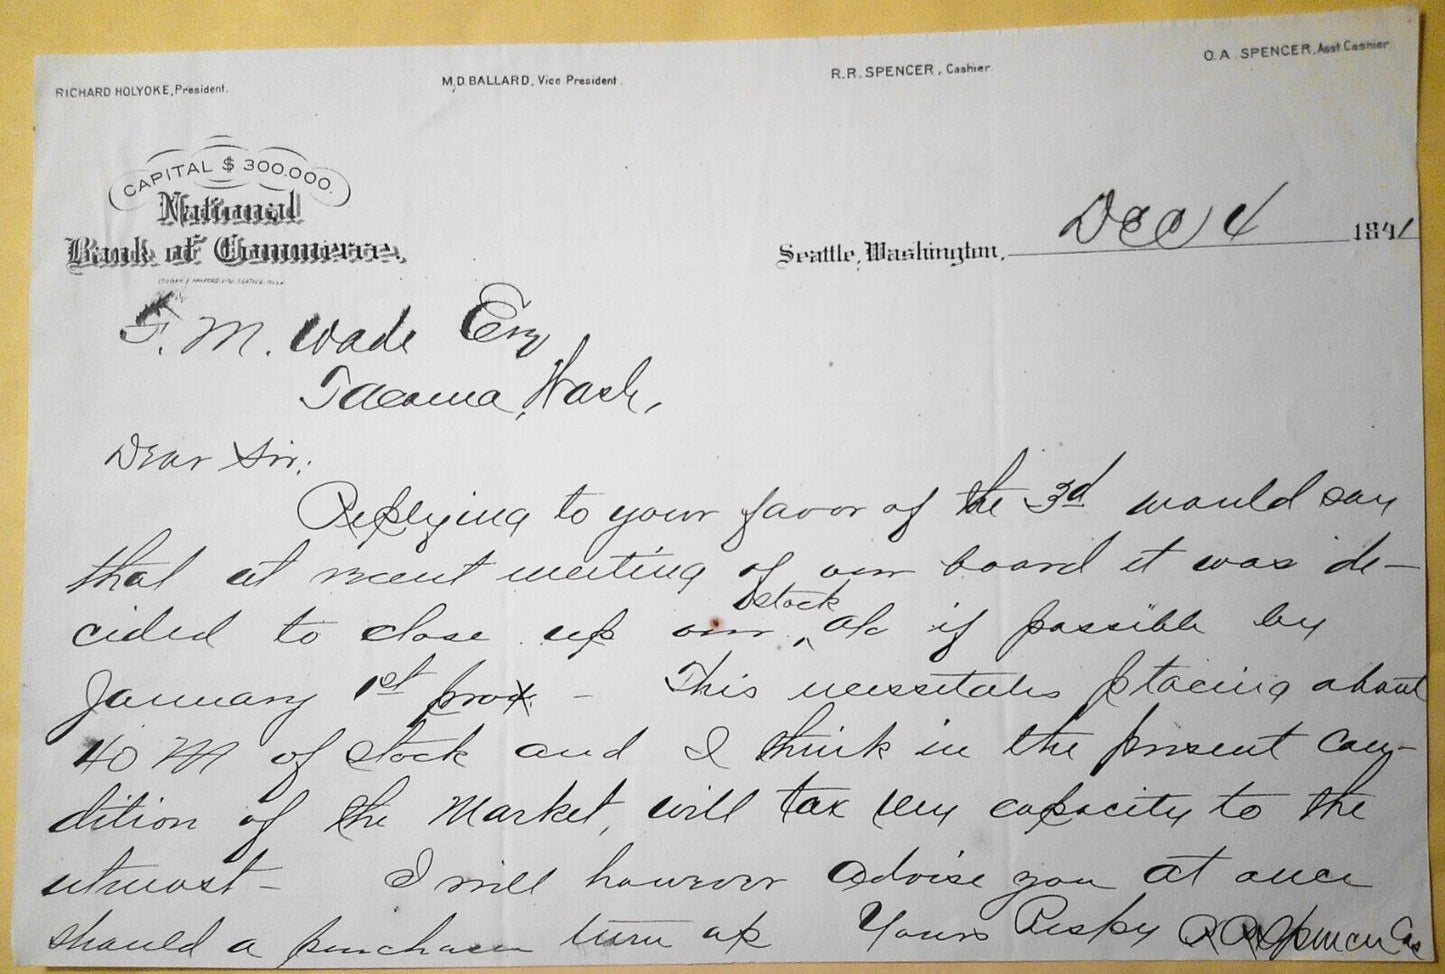 RICHARD HOLYOKE, President.
M.D. BALLARD, Vice President.
R.R. SPENCER, Cashier
O.A. SPENCER, Asst Cashier
CAPITAL $ 300.000.
National
Bank of Commerce,
Seattle, Washington, Dec 4 1891
F. M. Wade Esq
Tacoma, Wash,
Dear Sir:
Replying to your favor of the 3d would say
that at recent meeting of our board it was de-
cided to close up our ^ stock a/c if possible by
January 1st prox. - This necessitates placing about
40 M of stock and I think in the present con-
dition of the Market, will tax my capacity to the
utmost - I will however advise you at once
should a purchaser turn up Yours Respy R R Spencer Cas